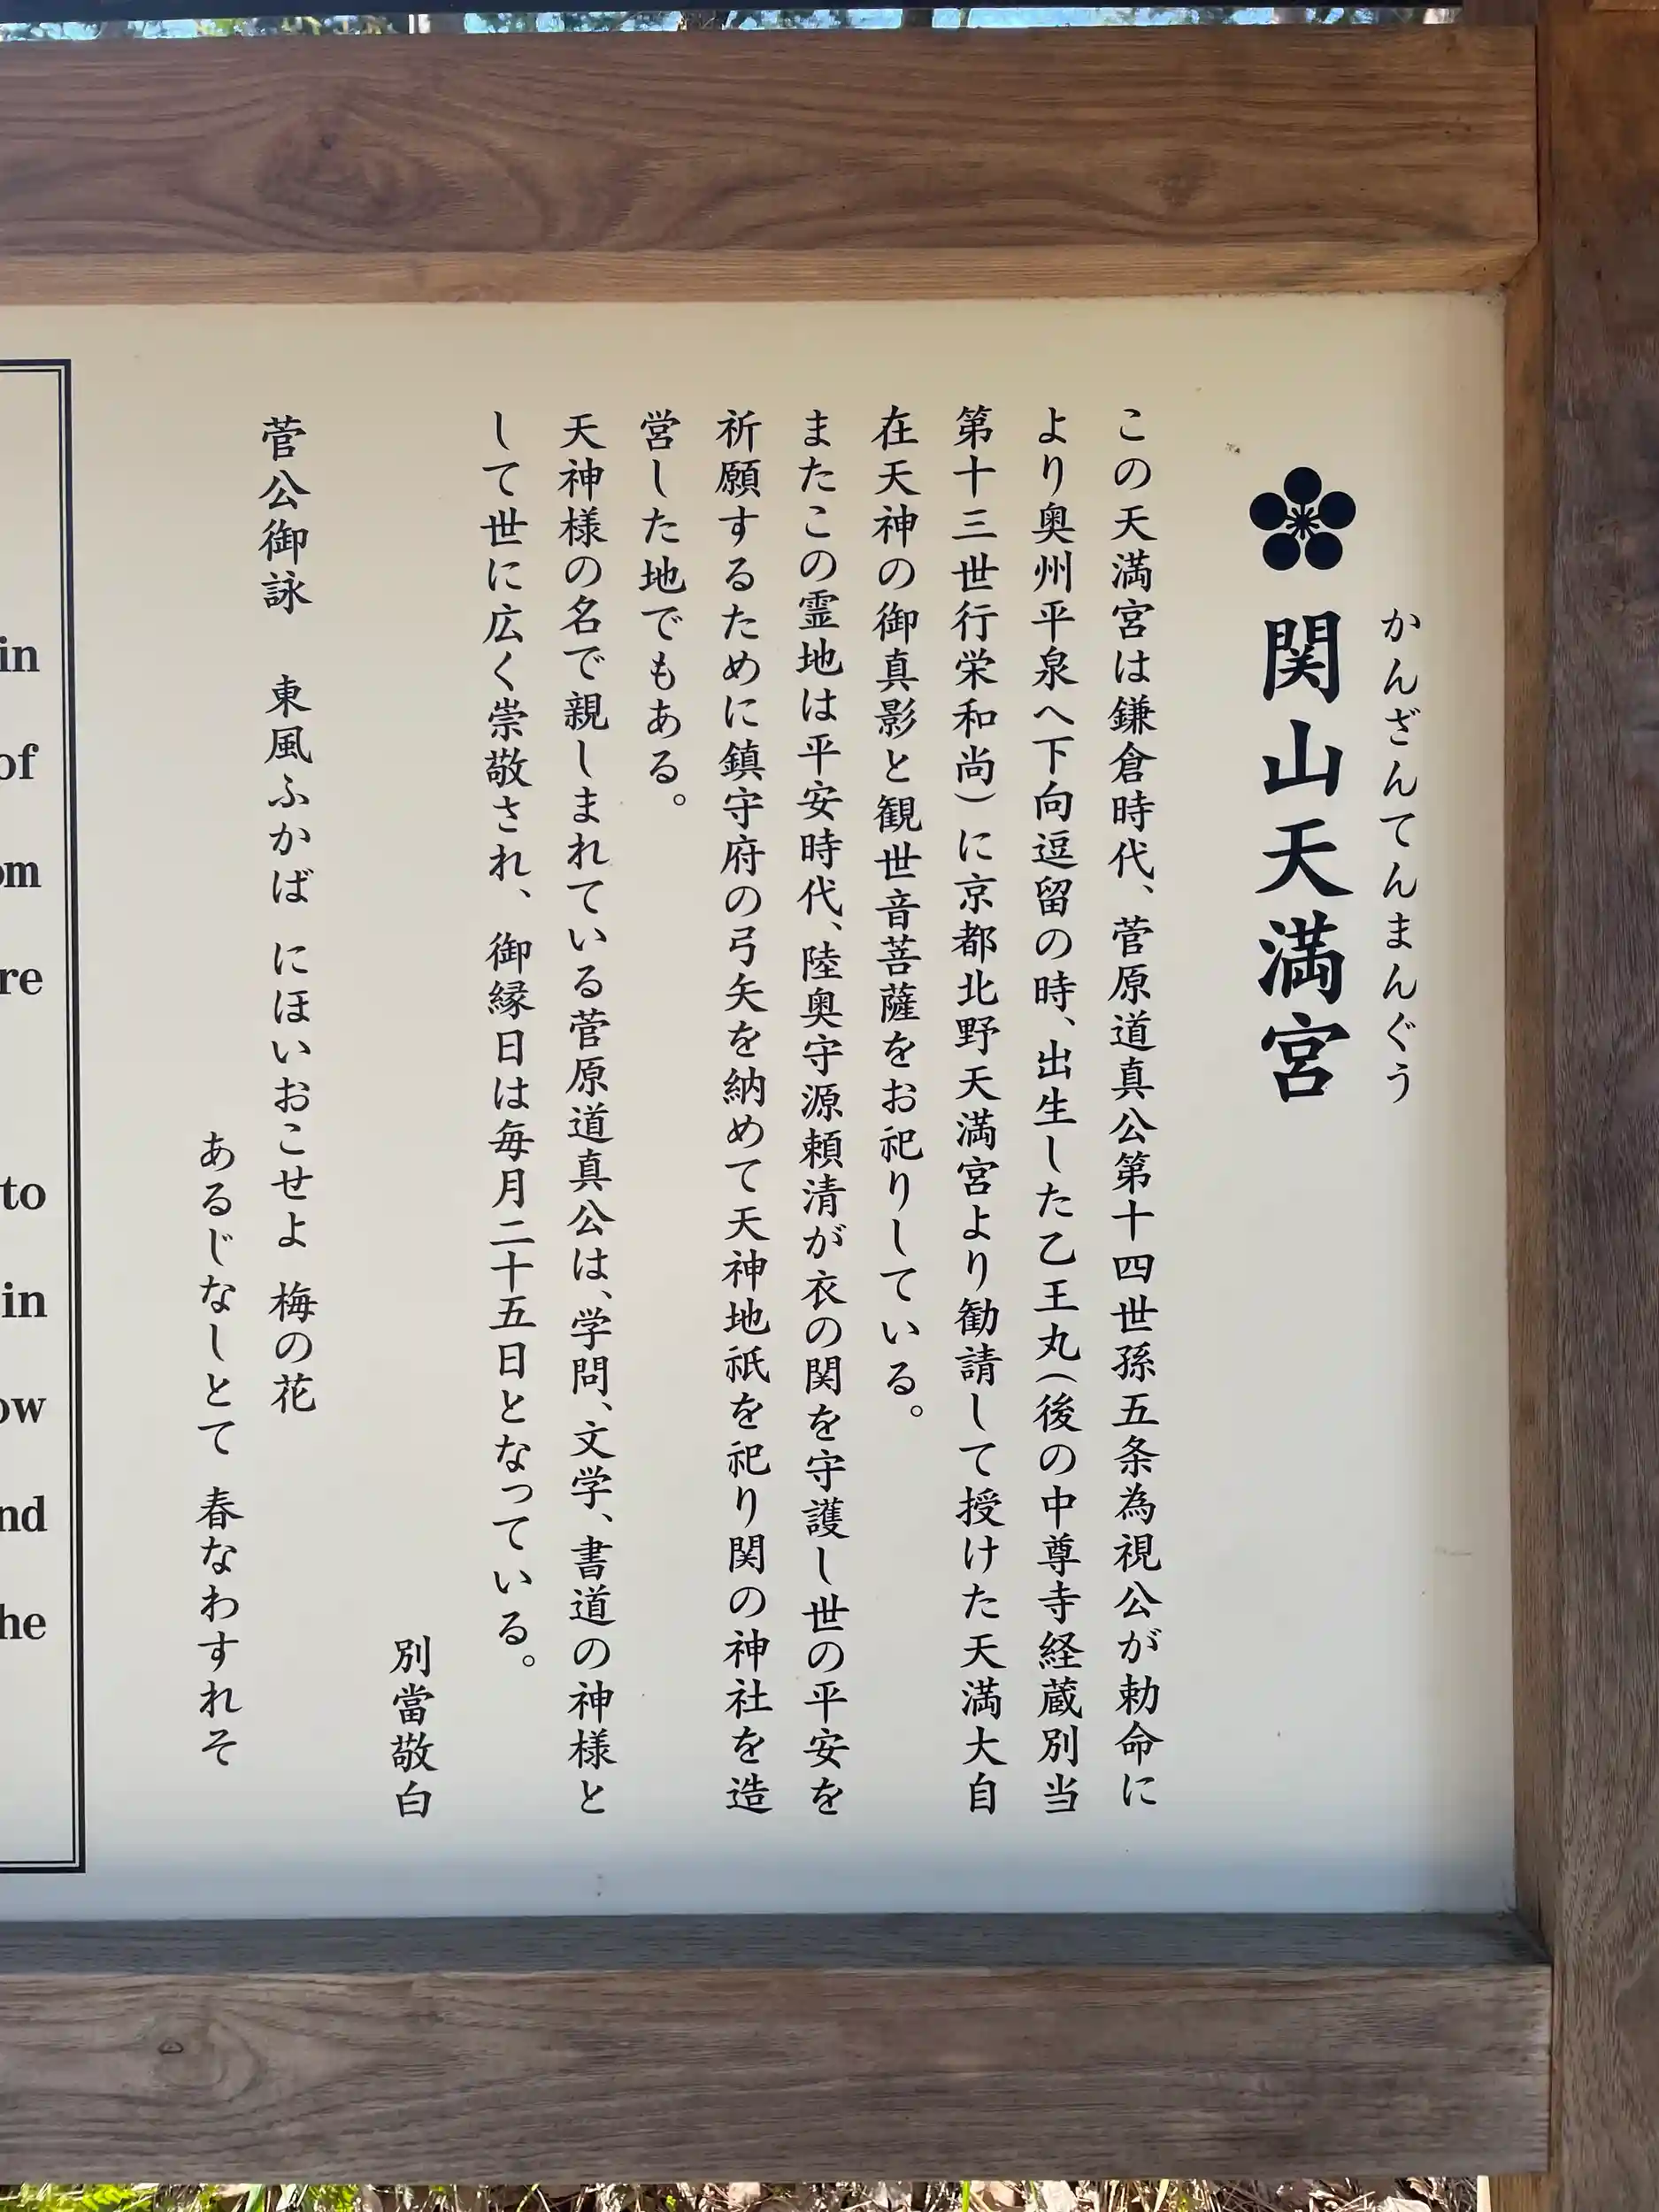 かんざんてんまんぐう
関山天満宮
この天満宮は鎌倉時代、菅原道真公第十四世孫五条為視公が勅命に
より奥州平泉へ下向逗留の時、出生した乙王丸(後の中尊寺経蔵別当
第十三世行栄和尚)に京都北野天満宮より勧請して授けた天満大自
在天神の御真影と観世音菩薩をお祀りしている。
またこの霊地は平安時代、陸奥守源頼清が衣の関を守護し世の平安を
祈願するために鎮守府の弓矢を納めて天神地祇を祀り関の神社を造
営した地でもある。
天神様の名で親しまれている菅原道真公は、学問、文学、書道の神様と
して世に広く崇敬され、御縁日は毎月二十五日となっている。
別當敬白
菅公御詠 東風ふかば にほいおこせよ 梅の花
あるじなしとて 春なわすれそ
in
of
om
re
to
in
ow
nd
he